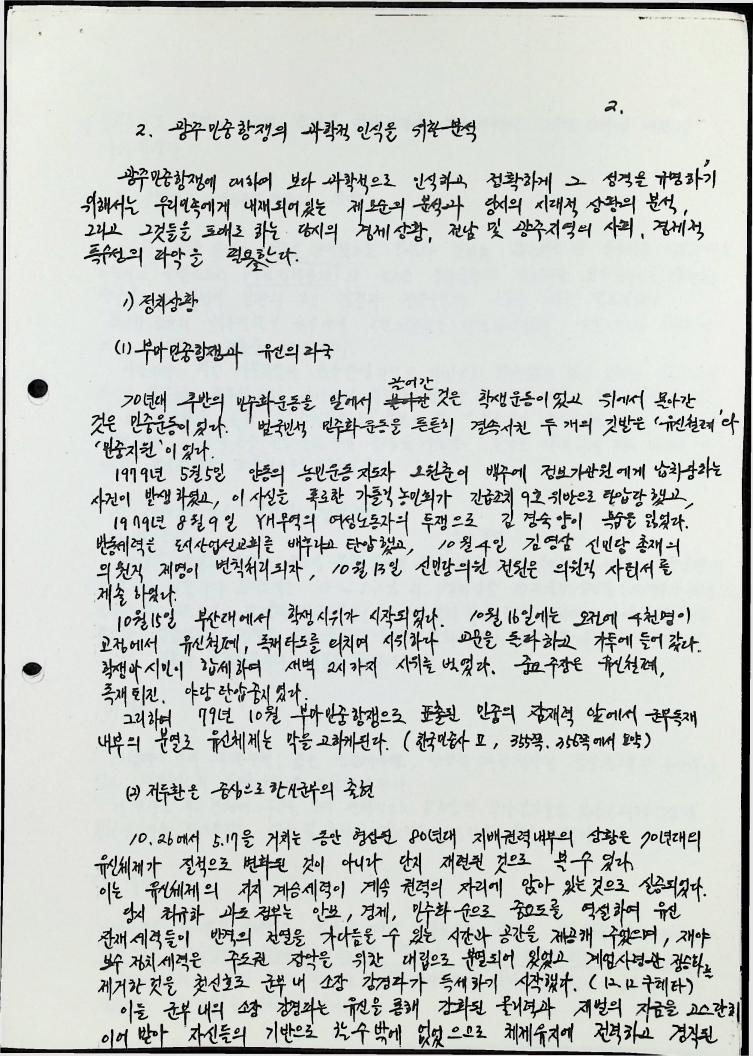 2.
2. 광주민중항쟁의 과학적 인식을 위한 분석
광주민중항쟁에 대하여 보다 과학적으로 인식하고 정확하게 그 성격을 규명하기
위해서는 우리민족에게 내재되어있는 제모순의 분석과 당시의 시대적 상황의 분석,
그리고 그것들을 토대로 하는 당시의 경제상황, 전남 및 광주지역의 사회, 경제적
특수성의 파악을 필요로한다.
1) 정치상황
(1) 부마민중항쟁과 유신의 파국
70년대 후반의 민주화운동을 앞에서 끌어간 것은 학생운동이었고 뒤에서 몰아간
것은 민중운동이었다. 범국민적 민주화운동을 튼튼히 결속시킨 두 개의 깃발은 '유신철폐'와
'민중지원'이 있다.
1979년 5월5일 안동의 농민운동 지도자 오원춘이 백주에 정보기관원에게 납치당하는
사건이 발생하였고, 이 사실을 폭로한 가톨릭농민회가 긴급조치 9호 위반으로 탄압당했고,
1979년 8월9일 YH무역의 여성노동자의 투쟁으로 김경숙양이 목숨을 잃었다.
반동세력은 도시산업선교회를 배후라고 탄압했고, 10월4일 김영삼 신민당 총재의
의원직 제명이 변칙처리되자, 10월13일 신민당의원 전원은 의원직 사퇴서를
제출하였다.
10월15일 부산대에서 학생시위가 시작되었다. 10월16일에는 오전에 4천명이
교정에서 유신철폐, 독재타도를 외치며 시위하다 교문을 돌파하고 가두에 들어갔다.
학생과 시민이 합세하여 새벽 2시까지 시위를 벌였다. 중요주장은 유신철폐,
독재퇴진, 야당탄압중지였다.
그리하여 79년 10월 부마민중항쟁으로 표출된 민중의 잠재력 앞에서 군부독재
내부의 분열로 유신체제는 막을 고하게된다. (한국민중사 II, 355쪽, 356쪽에서 요약)
(2) 전두환을 중심으로한 신군부의 출현
10.26에서 5.17을 거치는 동안 형성된 80년대 지배권력내부의 상황은 70년대의
유신체제가 질적으로 변화된 것이 아니라 단지 재편된 것으로 볼 수 있다.
이는 유신체제의 계승세력이 계속 권력의 자리에 앉아 있는것으로 실증되었다.
당시 최규하 과도정부는 안보, 경제, 민주화 순으로 중요도를 역설하여 유신
잔재세력들이 반격의 전열을 가다듬을 수 있는 시간과 공간을 제공해 주었으며, 재야
보수정치세력은 주도권 장악을 위한 대립으로 분열되어 있었고 계엄사령관 정승화를
제거한것을 첫신호로 군부내 소장 강경파가 득세하기 시작했다. (12.12 쿠데타)
이들 군부내의 소장 강경파는 유신을 통해 강화된 물리력과 재벌의 자금을 고스란히
이어 받아 자신들의 기반으로 할 수 밖에 없었으므로 체제유지에 전력하고 경직된